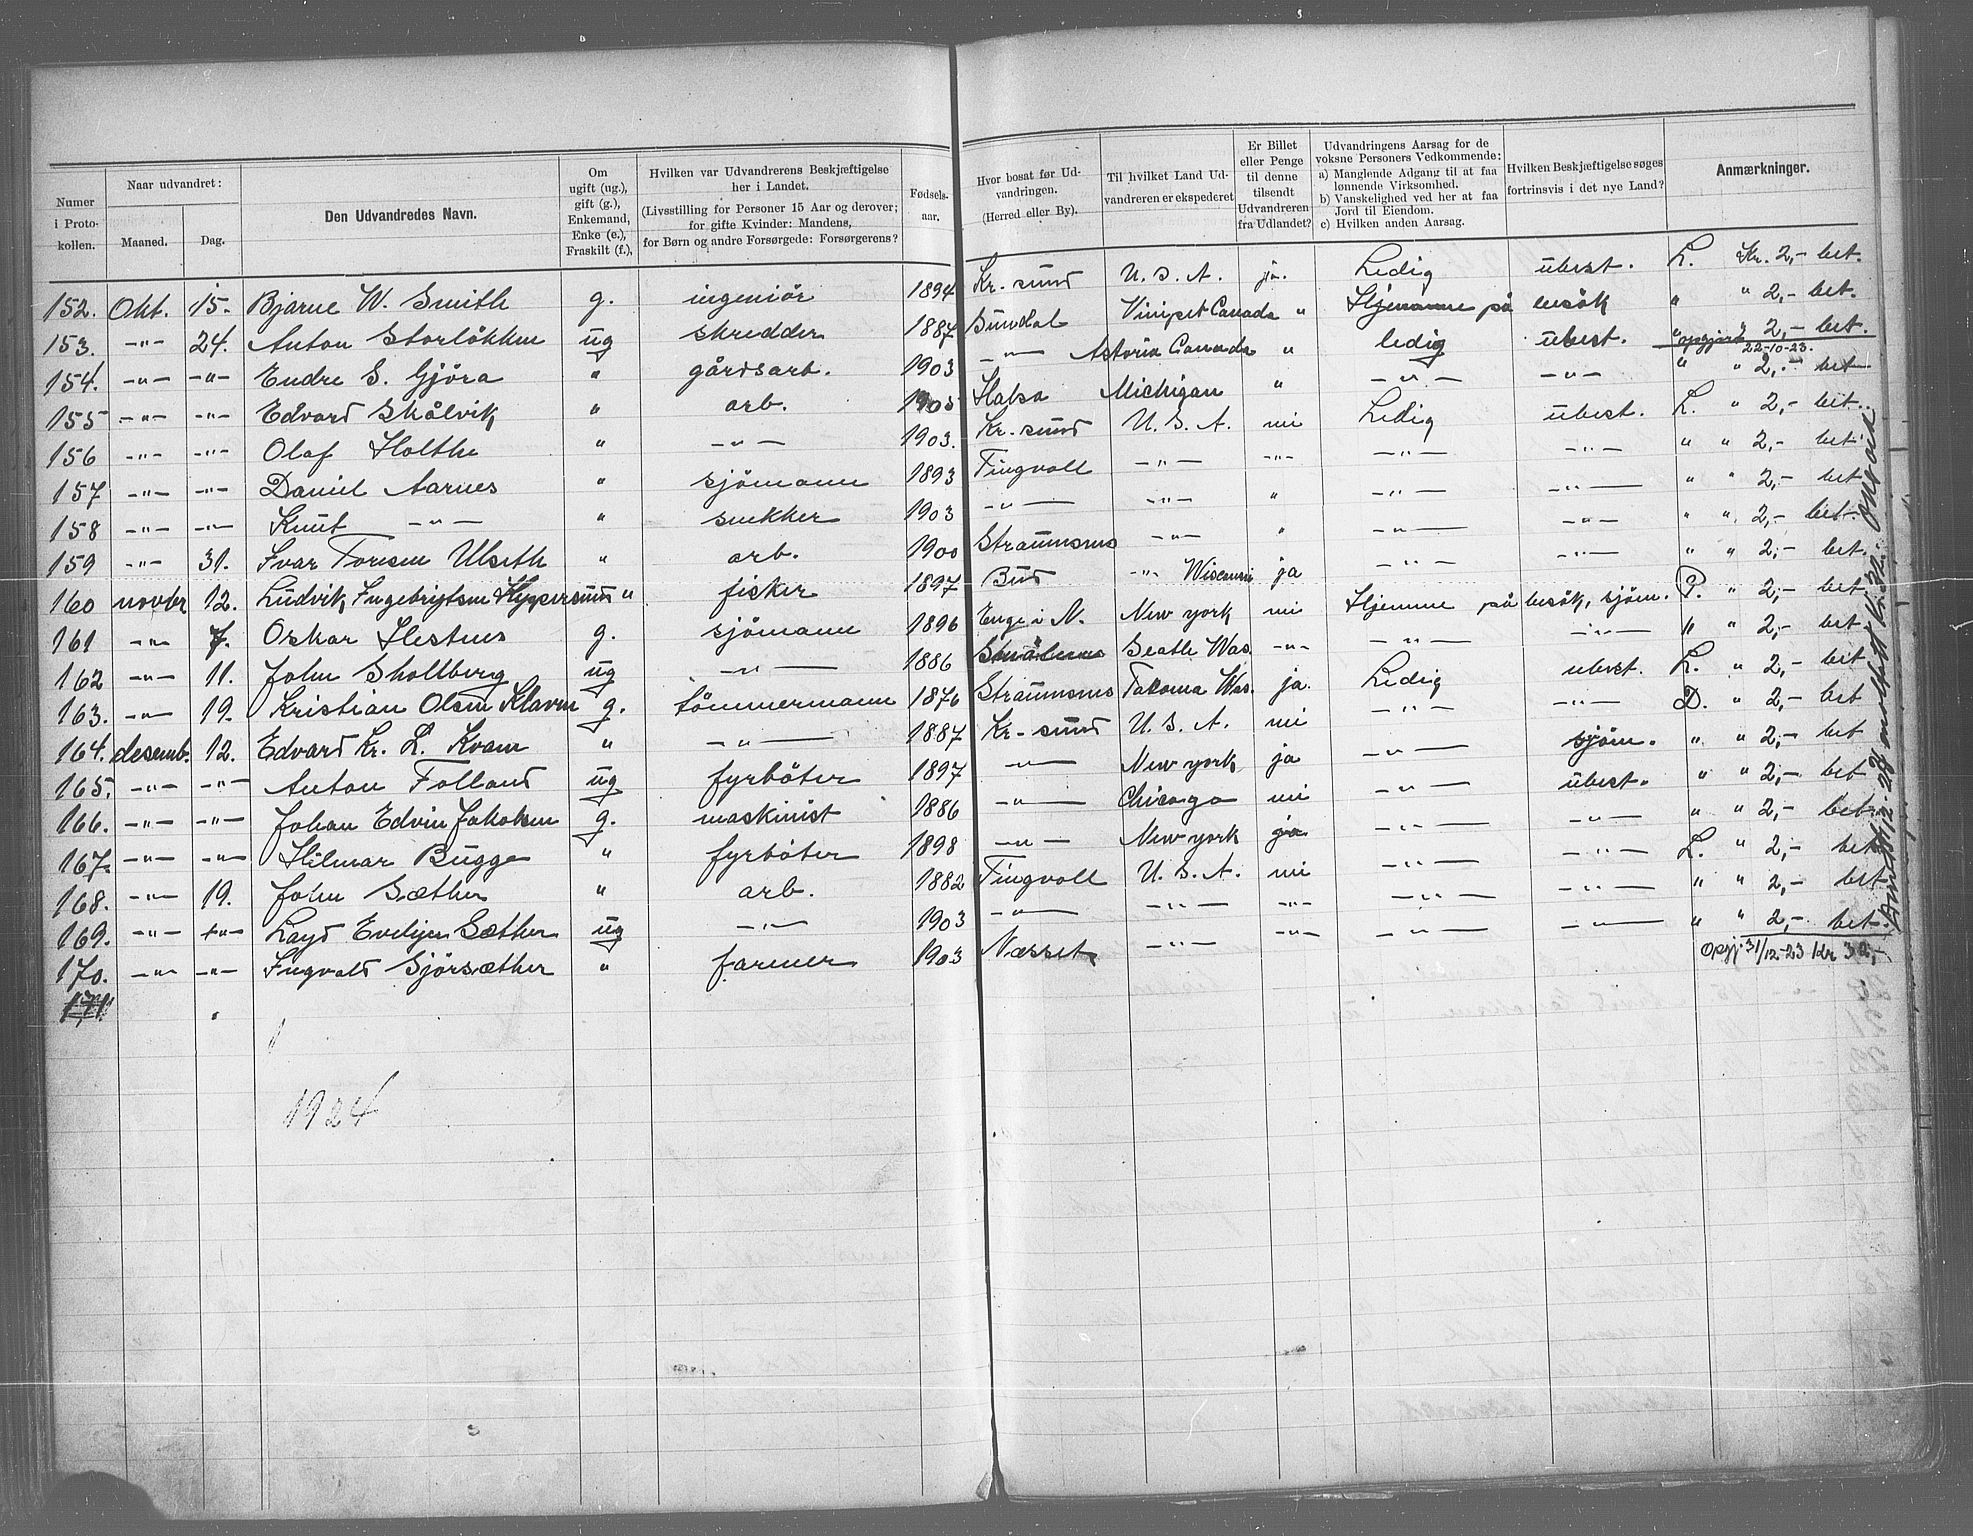 Numer i Protokollen. | Naar udvandret: Maaned. | Dag. | Den Udvandredes Navn. | Om ugift (ug.), gift (g.), Enkemand, Enke (e.), Fraskilt (f.), | Hvilken var Udvandrerens Beskjæftigelse her i Landet. (Livsstilling for Personer 15 Aar og derover; for gifte Kvinder: Mandens, for Børn og andre Forsørgede: Forsørgerens? | Fødselsaar. | Hvor bosat før Udvandringen. (Herred eller By). | Til hvilket Land Udvandreren er ekspederet | Er Billet eller Penge til denne tilsendt Udvandreren fra Udlandet? | Udvandringens Aarsag for de voksne Personers Vedkommende: a) Manglende Adgang til at faa lønnende Virksomhed. b) Vanskelighed ved her at faa Jord til Eiendom. c) Hvilken anden Aarsag. | Hvilken Beskjæftigelse søges fortrinsvis i det nye Land? | Anmærkninger.
152. Okt. 15. Bjarne W. Smith g. ingeniör 1894 Kr. sund U.S.A. ja. Ledig ubest. L. Kr. 2,- bet.
153. -"- 24. Anton Storløkken ug skredder 1887 Sundal Vinipet Canada " Hjemme på besök " " 2,- bet.
154. -"- -"- Endre S. Gjöra " gårdsarb. 1903 -"- Astoria Canada " ledig ubest. " opgjort " 2,- bet.
22-10-23.
155 -"- -"- Edvard Skålvik " arb. 1905 Halsa Michigan " -"- -"- " " 2,- bet
156 -"- -"- Olaf Holthe " -"- 1903. Kr. sund U.S.A. nei Ledig ubest. L. " 2,- bet.
157 -"- -"- Daniel Aarnes " sjömann 1893 Tingvoll -"- -"- -"- -"- " " 2,- bet
158 -"- -"- Knut -"- " snekker 1903 -"- -"- " -"- -"- " " 2,- bet
159 -"- 31. Ivar Toresen Ulseth " arb. 1900 Straumsnes -"- " -"- -"- " " 2,- bet.
160 novbr 12. Ludvik Ingebrigtsen " fisker 1897 Bud -"- Wisconsin ja -"- -"- " " 2,- bet.
161 -"- 7. Oskar Hestnes g. sjömann 1896 Enge i N. New york nei Hjemme på besök, sjöm. P. " 2,- bet
162 -"- 11. John Shollberg ug -"- 1886 Seatle Was. -"- -"- -"- " " 2,- bet
163. -"- 19. Kristian Olsen g. tömmermann 1876 Straumsnes Takoma Was. ja. Ledig ubest. L. " 2,- bet
164. desemb. 12. Edvard Kr. L. Kvam " -"- 1887 Kr-sund U.S.A. nei -"- -"- D. " 2,- bet
165. -"- -"- Anton Folland ug fyrböter 1897 -"- New york ja -"- sjöm. " " 2,- bet
166. -"- -"- Johan Edvin Jakobsen g. maskinist 1886 -"- Chicago nei -"- ubest. " " 2,- bet
167. -"- -"- Hilmar Bugge " fyrböter 1898 -"- New york ja -"- -"- " " 2,- bet
168. -"- 19. John Sæther " arb. 1882 Tingvoll U.S.A. nei -"- -"- L. " 2,- bet
169. -"- -"- Layd Sæther ug -"- 1903 -"- -"- -"- -"- -"- " " 2,- bet
170. -"- -"- Ingvald Gjörsæther " farmer 1903 Næsset -"- -"- -"- -"- " " 2,- bet.
171. Opgj 31/12-23 Kr 32,-
1924